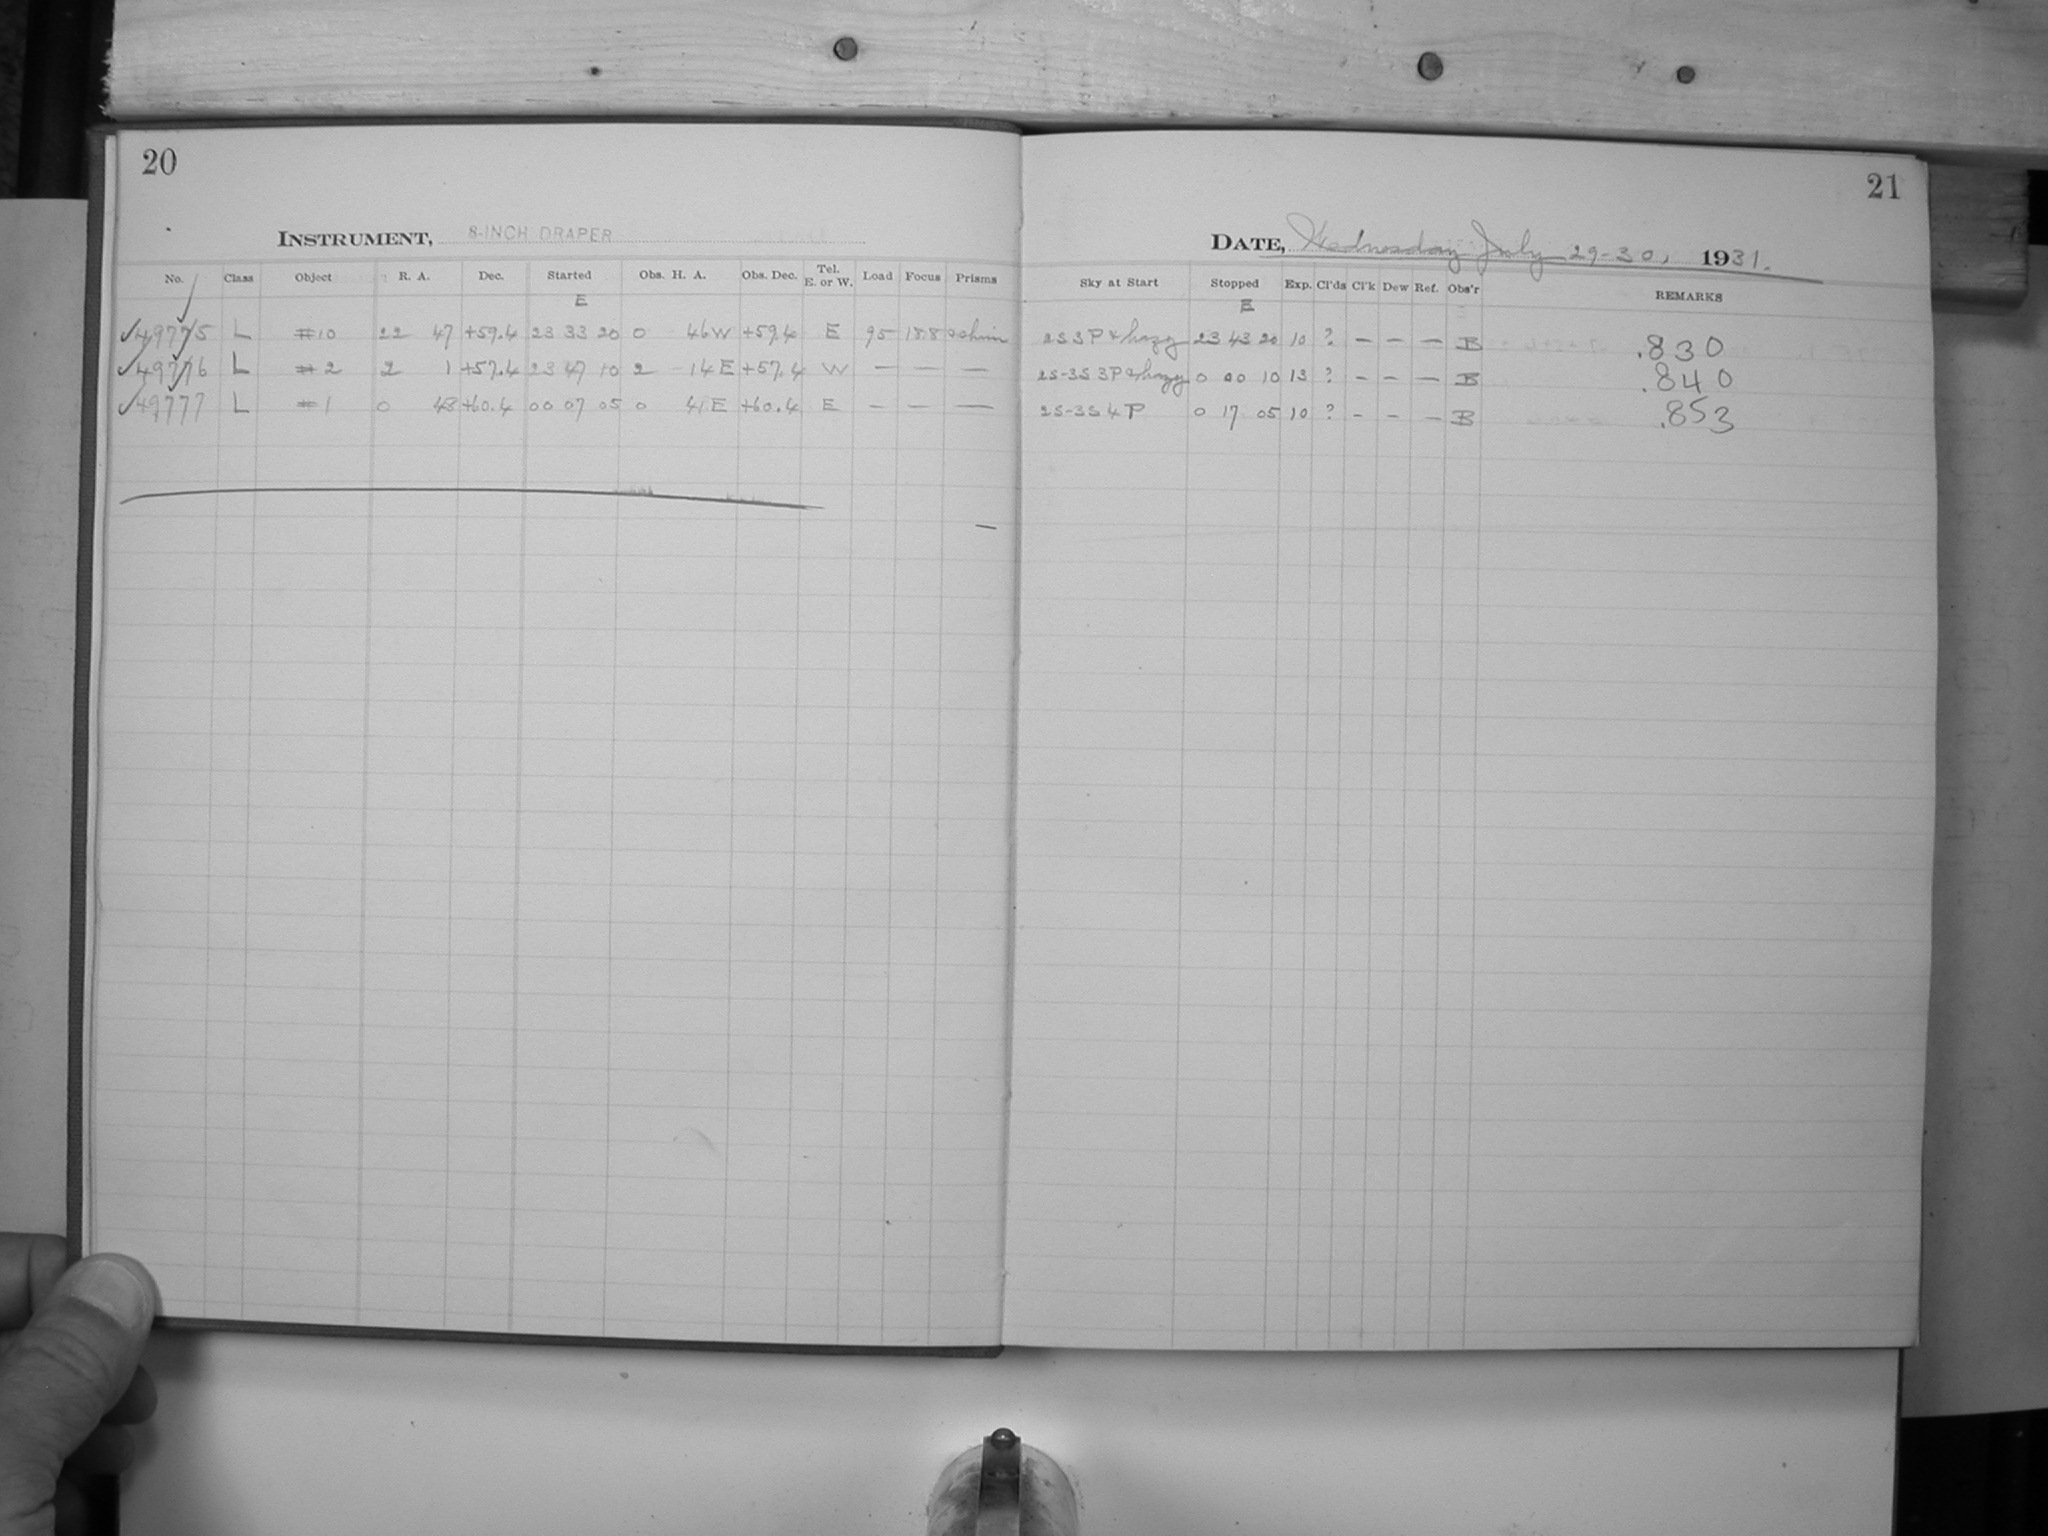 20
INSTRUMENT, 8-INCH DRAPER
No. Class Object R. A. Dec. Started Obs. H. A. Obs. Dec. Tel. E. or W. Load Focus Prisms
E
49775 L #10 22 47 +59.4 23 33 20 0 46 W +59.4 E 95 188
49776 L #2 2 1 +57.4 23 47 10 2 14 E +57.4 W — — —
49777 L #1 0 48 +60.4 00 07 05 0 41 E +60.4 E — — —
21
DATE, Wednesday July 29-30, 1931.
Sky at Start Stopped Exp. Cl'ds Cl'k Dew Ref. Obs'r REMARKS
E
2S 3P & hazy 23 43 20 10 ? — — — B .830
2S-3S 3P & hazy 0 00 10 13 ? — — — B .840
2S-3S 4P 0 17 05 10 ? — — — B .853